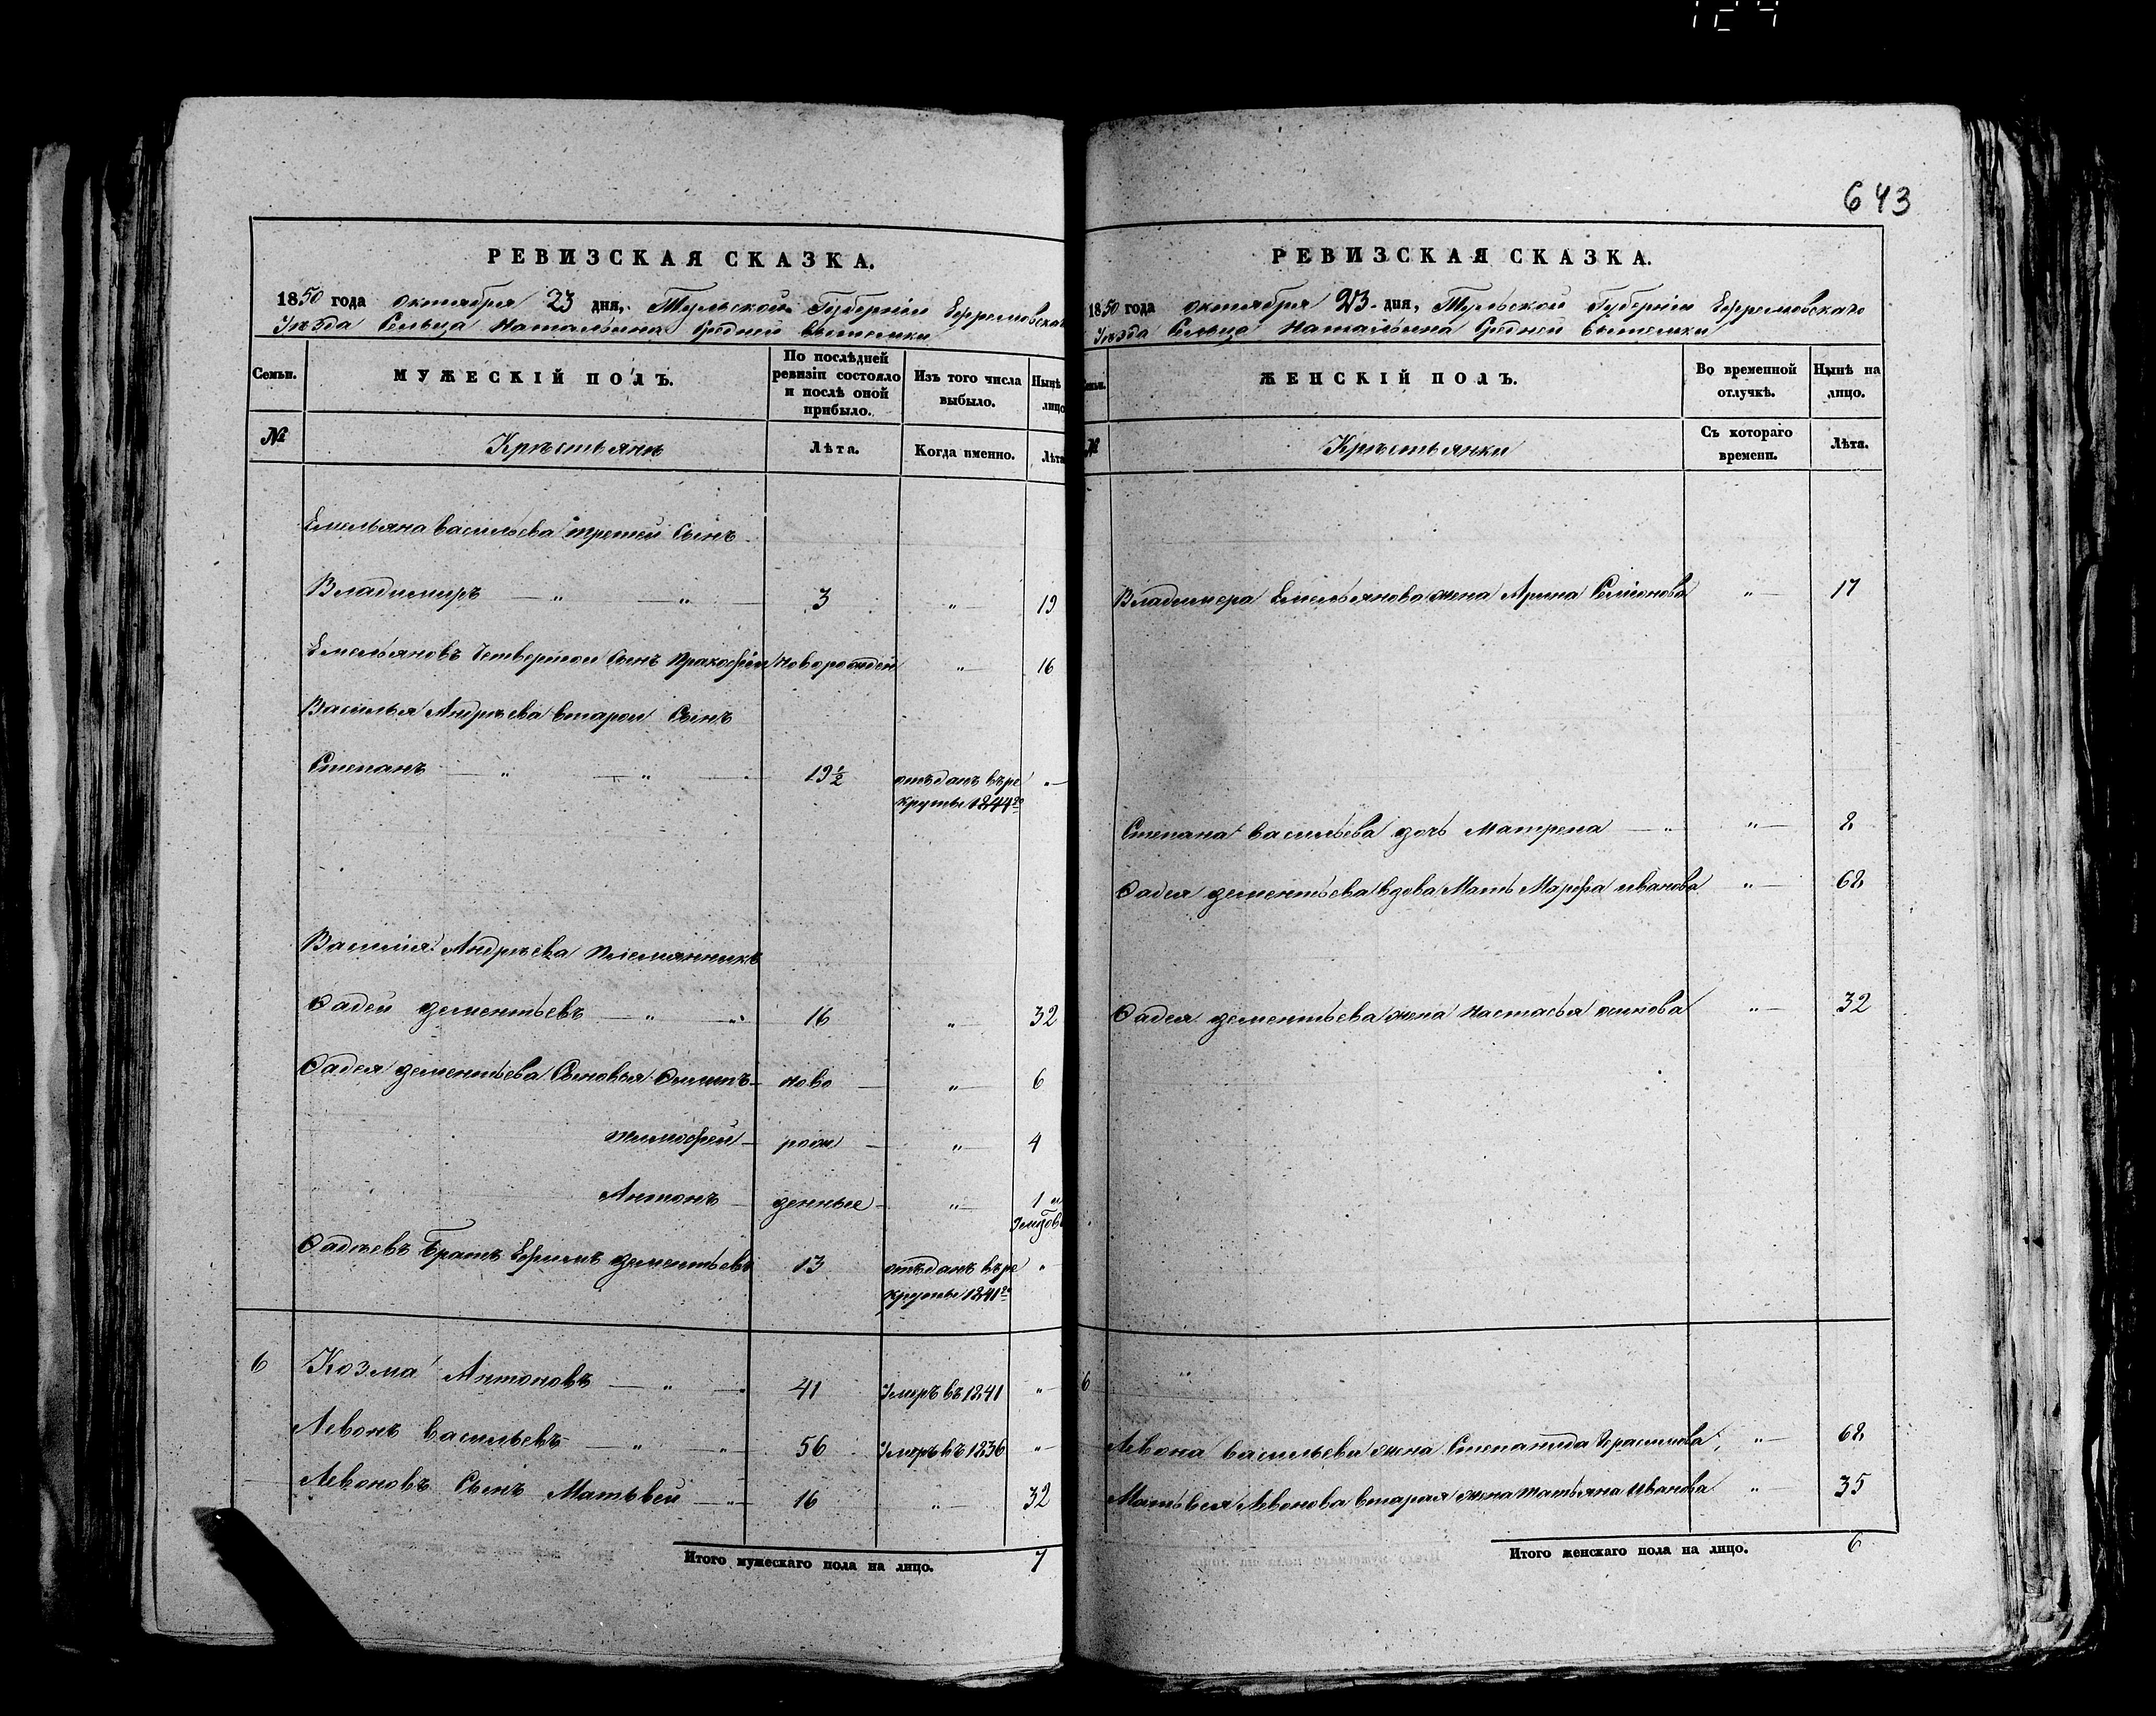 124
643
РЕВИЗСКАЯ СКАЗКА.
1850 года октября 23 дня, Тульской Губернiи Ефремовскаго
Уѣзда Сельца Натальина Средней вытемки
Семьи.
МУЖЕСКІЙ ПОЛЪ.
По послѣдней ревизіи состояло и послѣ оной прибыло.
Изъ того числа выбыло.
Нынѣ лицо
№
Крѣстьянѣ
Лѣта.
Когда именно.
Лѣта
Емельяна васильева третей Сынъ
Владимиръ — „ — „ — 3 „ 19
Емельяновъ Четвертой Сынъ Пракофiи новорожден „ 16
Василья Андрѣева второй Сынъ
Степанъ — „ — „ — 19½ отъданъ върѣ „
круты 1844го
Василiя Андрѣева племянникъ
Фадей дементьевъ — „ — „ 16 „ 32
Фадея дементьева Сыновья Филипъ — ново — „ 6
тимофей — рож — „ 4
Антонъ — денные — „ 1
Фадѣевъ Братъ Ефимъ дементьевъ 13 отъданъ върѣ „
круты 1841го
6 Козма Антоновъ — „ — 41 Умеръ въ 1841 „
Левонъ васильевъ — „ — „ 56 Умеръ въ 1836 „
Левоновъ Сынъ Матьвей — „ — 16 „ 32
Итого мужескаго пола на лицо. 7
РЕВИЗСКАЯ СКАЗКА.
1850 года октября 23 дня, Тульской Губернiи Ефремовскаго
Уѣзда Сельца Натальина Средней вытемки
Семьи.
ЖЕНСКІЙ ПОЛЪ.
Во временной отлучкѣ.
Нынѣ на лицо.
№
Крѣстьянки
Съ котораго времени.
Лѣта.
Владимера Емельянова жена Арина Семiонова „ 17
Степана васильева дочь Матрена — „ „ 8
Фадея дементьева вдова Мать Марфа иванова „ 68
Фадея дементьева жена Настасья осипова „ 32
6 „
Левона васильева жена Степанида Герасимова „ 68
Матьвея Левонова вторая жена татьяна Иванова „ 35
Итого женскаго пола на лицо. 6